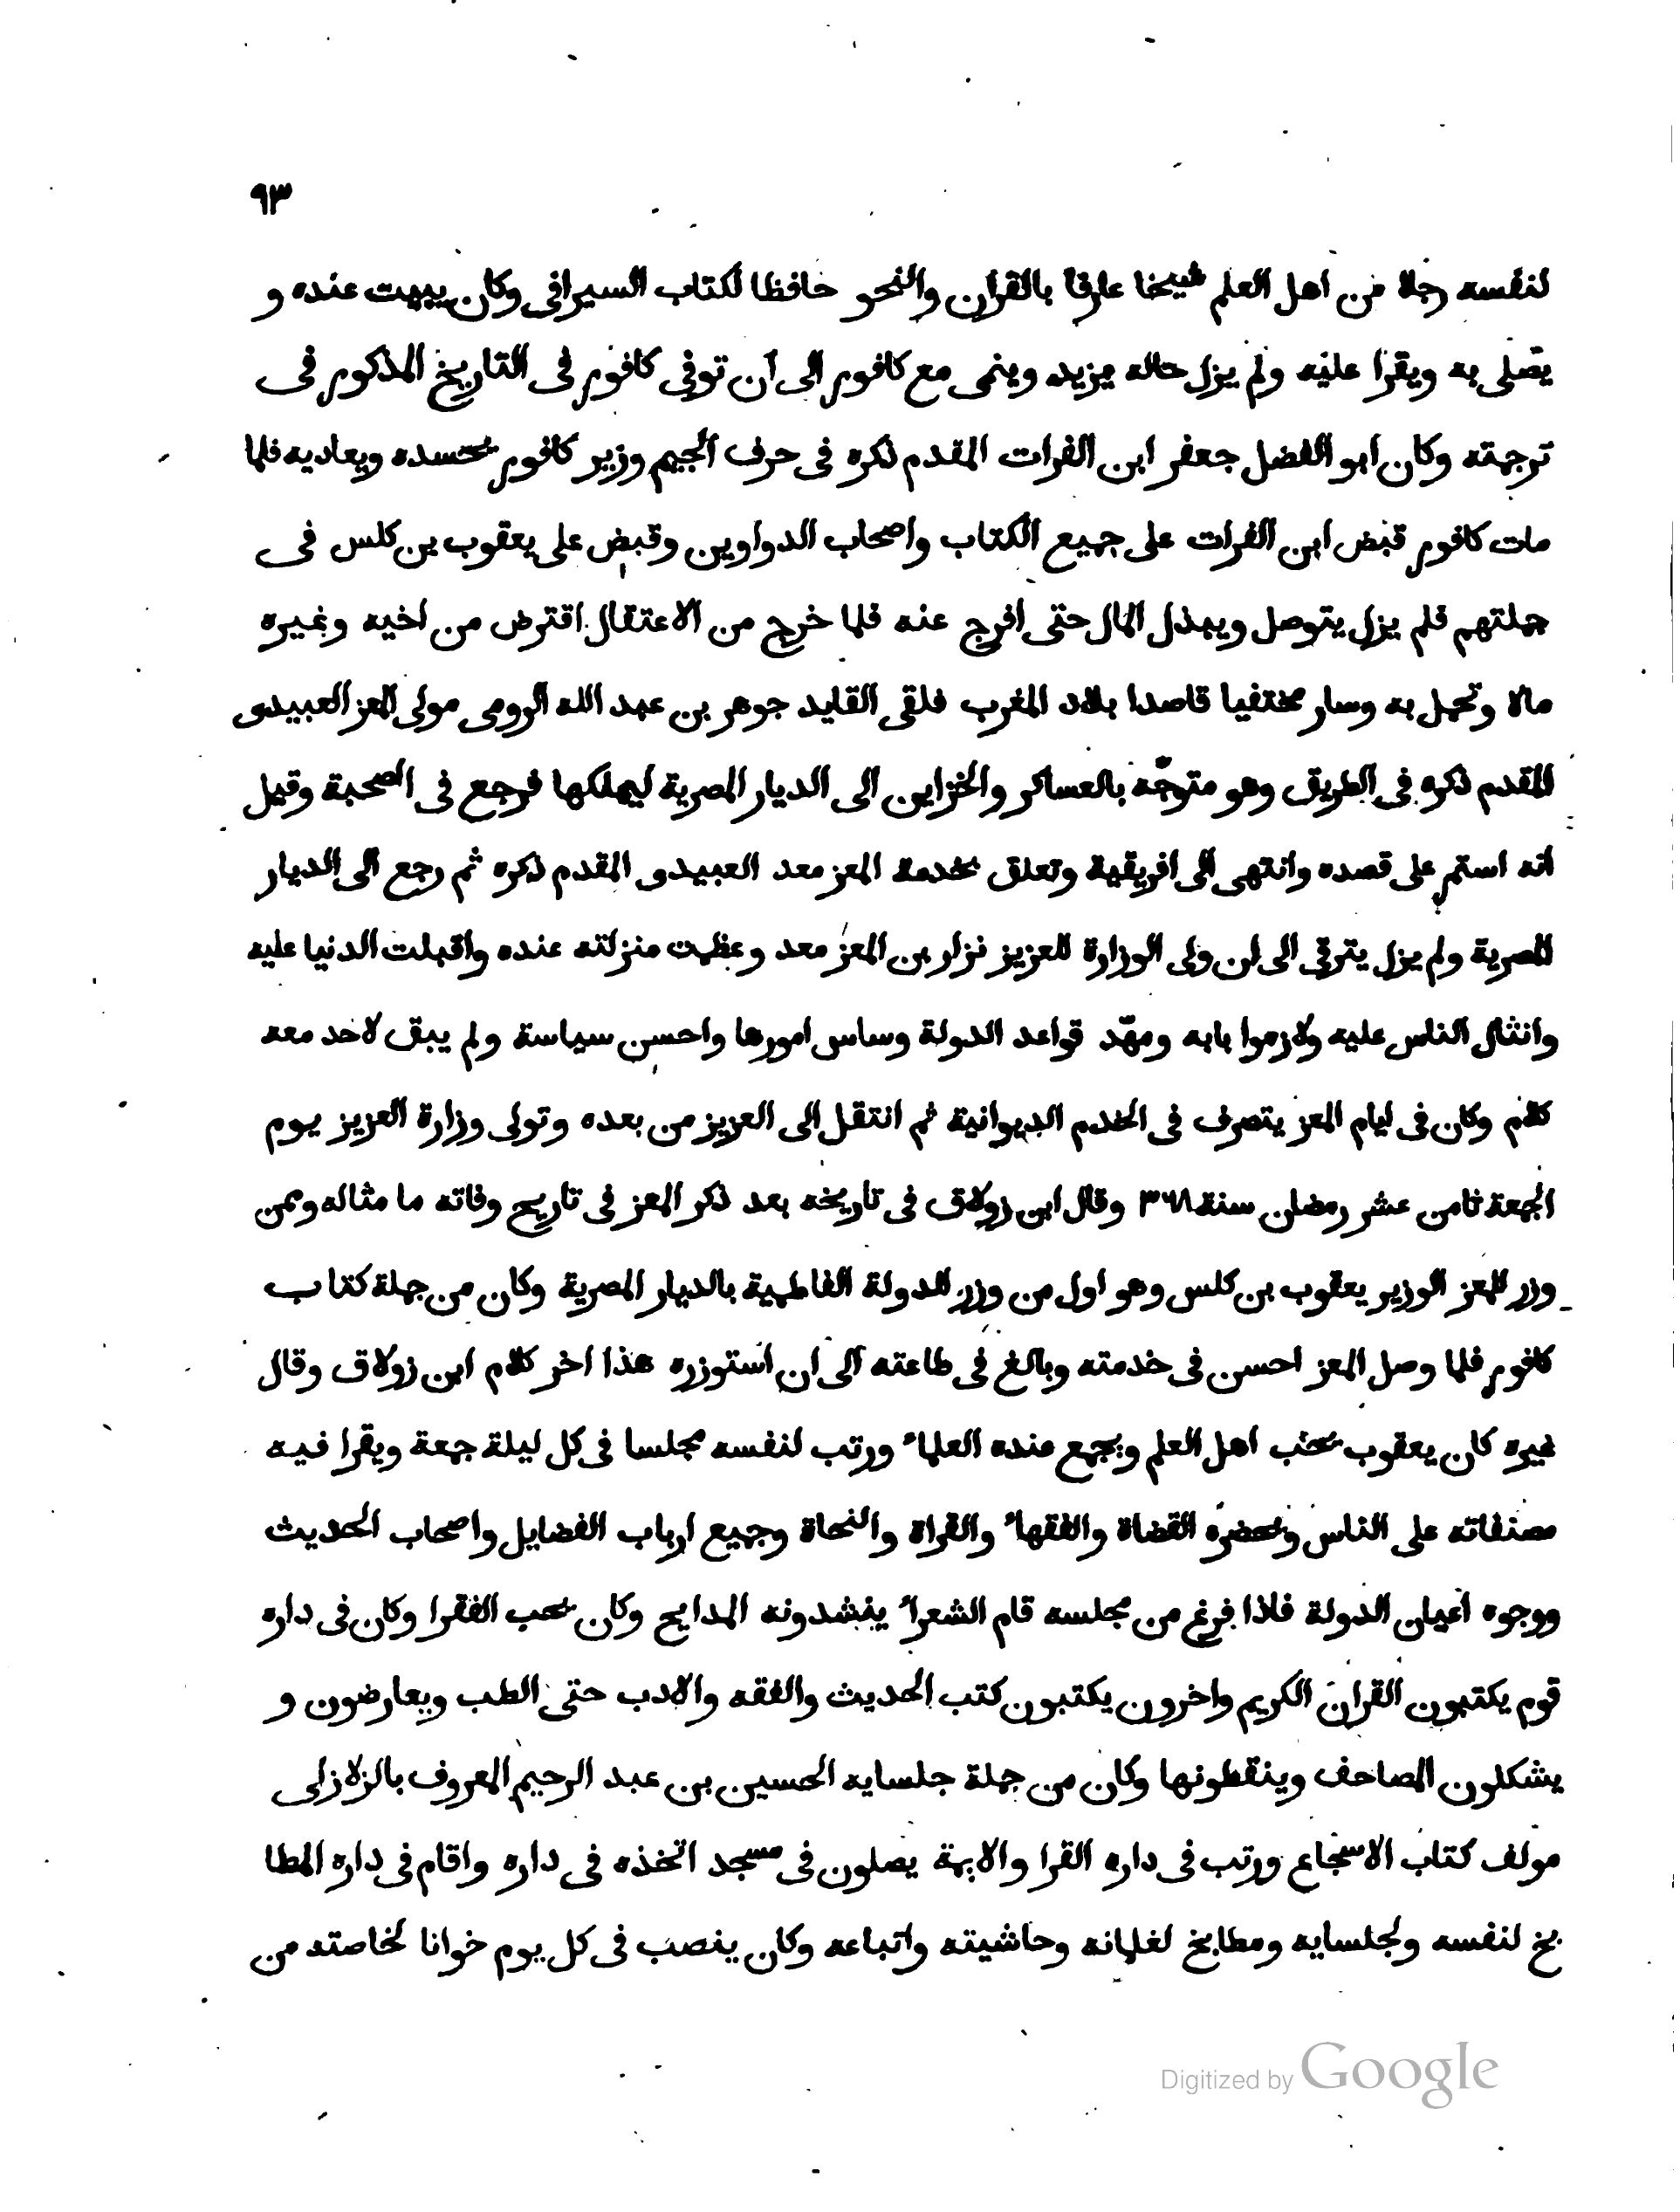 ٩٣
لنفسه رجلا من اهل العلم شيخا عارفا بالقران والنحو حافظا لكتاب السيرافى وكان يبيت عنده و
يصلى به ويقرا عليه ولم يزل حاله يزيد وينمى مع كافور الى ان توفى كافور فى التاريخ المذكور فى
ترجمته وكان ابو الفضل جعفر ابن الفرات المقدم ذكره فى حرف الجيم وزير كافور يحسده ويعاديه فلما
مات كافور قبض ابن الفرات على جميع الكتاب واصحاب الدواوين وقبض على يعقوب بن كلس فى
جملتهم فلم يزل يتوصل ويبذل المال حتى افرج عنه فلما خرج من الاعتقال اقترض من اخيه وغيره
مالا وتجمل به وسار مختفيا قاصدا بلاد المغرب فلقى القايد جوهر بن عبد الله الرومى مولى المعز العبيدى
المقدم ذكره فى الطريق وهو متوجّه بالعساكر والخزاين الى الديار المصرية ليملكها فرجع فى الصحبة وقيل
انه استمر على قصده وانتهى الى افريقية وتعلق بخدمة المعز معد العبيدى المقدم ذكره ثم رجع الى الديار
المصرية ولم يزل يترقى الى ان ولى الوزارة للعزيز نزار بن المعز معد وعظمت منزلته عنده واقبلت الدنيا عليه
وانثال الناس عليه ولازموا بابه ومهّد قواعد الدولة وساس امورها واحسن سياسة ولم يبق لاحد معه
كلام وكان فى ايام المعز يتصرف فى الخدم الديوانية ثم انتقل الى العزيز من بعده وتولى وزارة العزيز يوم
الجمعة ثامن عشر رمضان سنة ٣٦٨ وقال ابن زولاق فى تاريخه بعد ذكر المعز فى تاريخ وفاته ما مثاله وممن
وزر للمعز الوزير يعقوب بن كلس وهو اول من وزر للدولة الفاطمية بالديار المصرية وكان من جملة كتاب
كافور فلما وصل المعز احسن فى خدمته وبالغ فى طاعته الى ان استوزره هذا اخر كلام ابن زولاق وقال
غيره كان يعقوب يحب اهل العلم ويجمع عنده العلماء ورتب لنفسه مجلسا فى كل ليلة جمعة ويقرا فيه
مصنفاته على الناس ويحضره القضاة والفقهاء والقراة والنحاة وجميع ارباب الفضايل واصحاب الحديث
ووجوه اعيان الدولة فاذا فرغ من مجلسه قام الشعراء ينشدونه المدايح وكان يحب الفقرا وكان فى داره
قوم يكتبون القران الكريم واخرون يكتبون كتب الحديث والفقه والادب حتى الطب ويعارضون و
يشكلون المصاحف وينقطونها وكان من جملة جلسايه الحسين بن عبد الرحيم المعروف بالزلازلى
مولف كتاب الاسجاع ورتب فى داره القرا والايمة يصلون فى مسجد اتخذه فى داره واقام فى داره المطا
بخ لنفسه ولجلسايه ومطابخ لغلمانه وحاشيته واتباعه وكان ينصب فى كل يوم خوانا لخاصته من
Digitized by Google